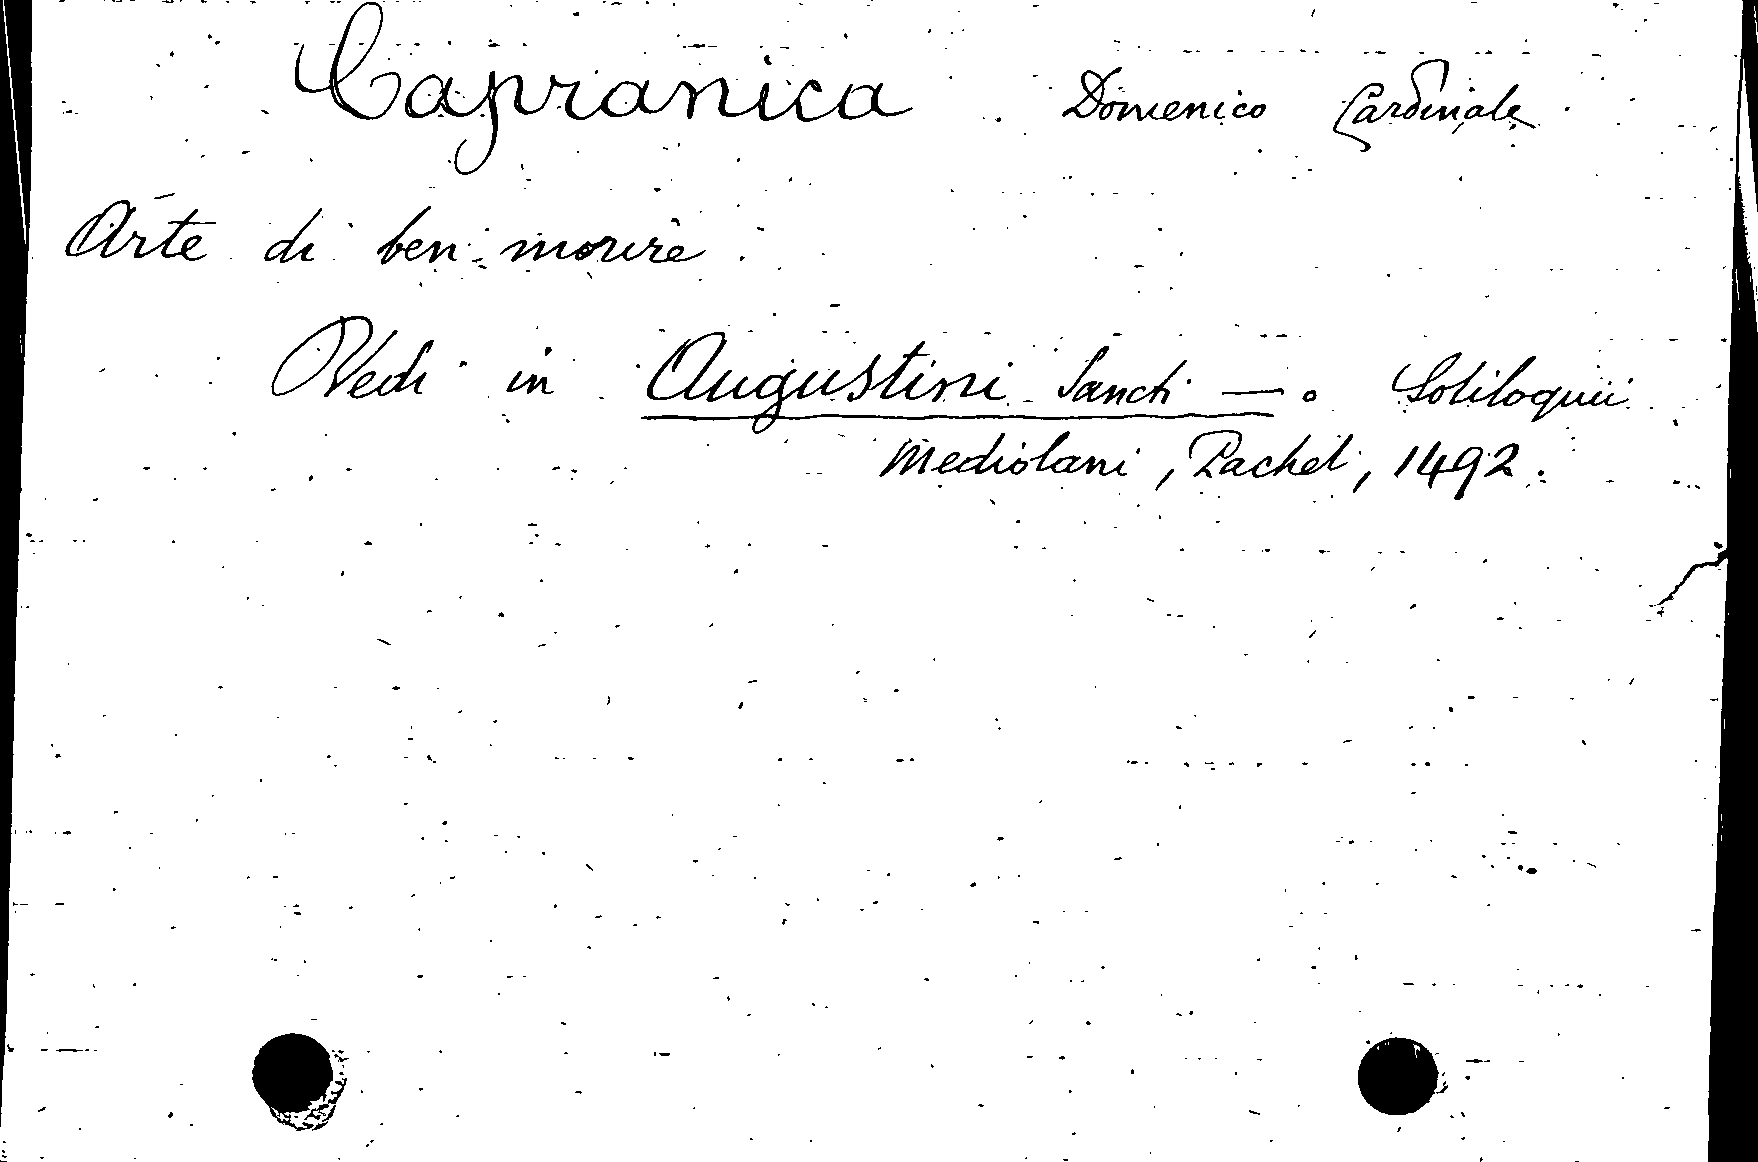 Capranica Domenico Cardinale
Arte di ben morire.
Vedi in Augustini Sancti —. Soliloquii
Mediolani, Pachel, 1492.